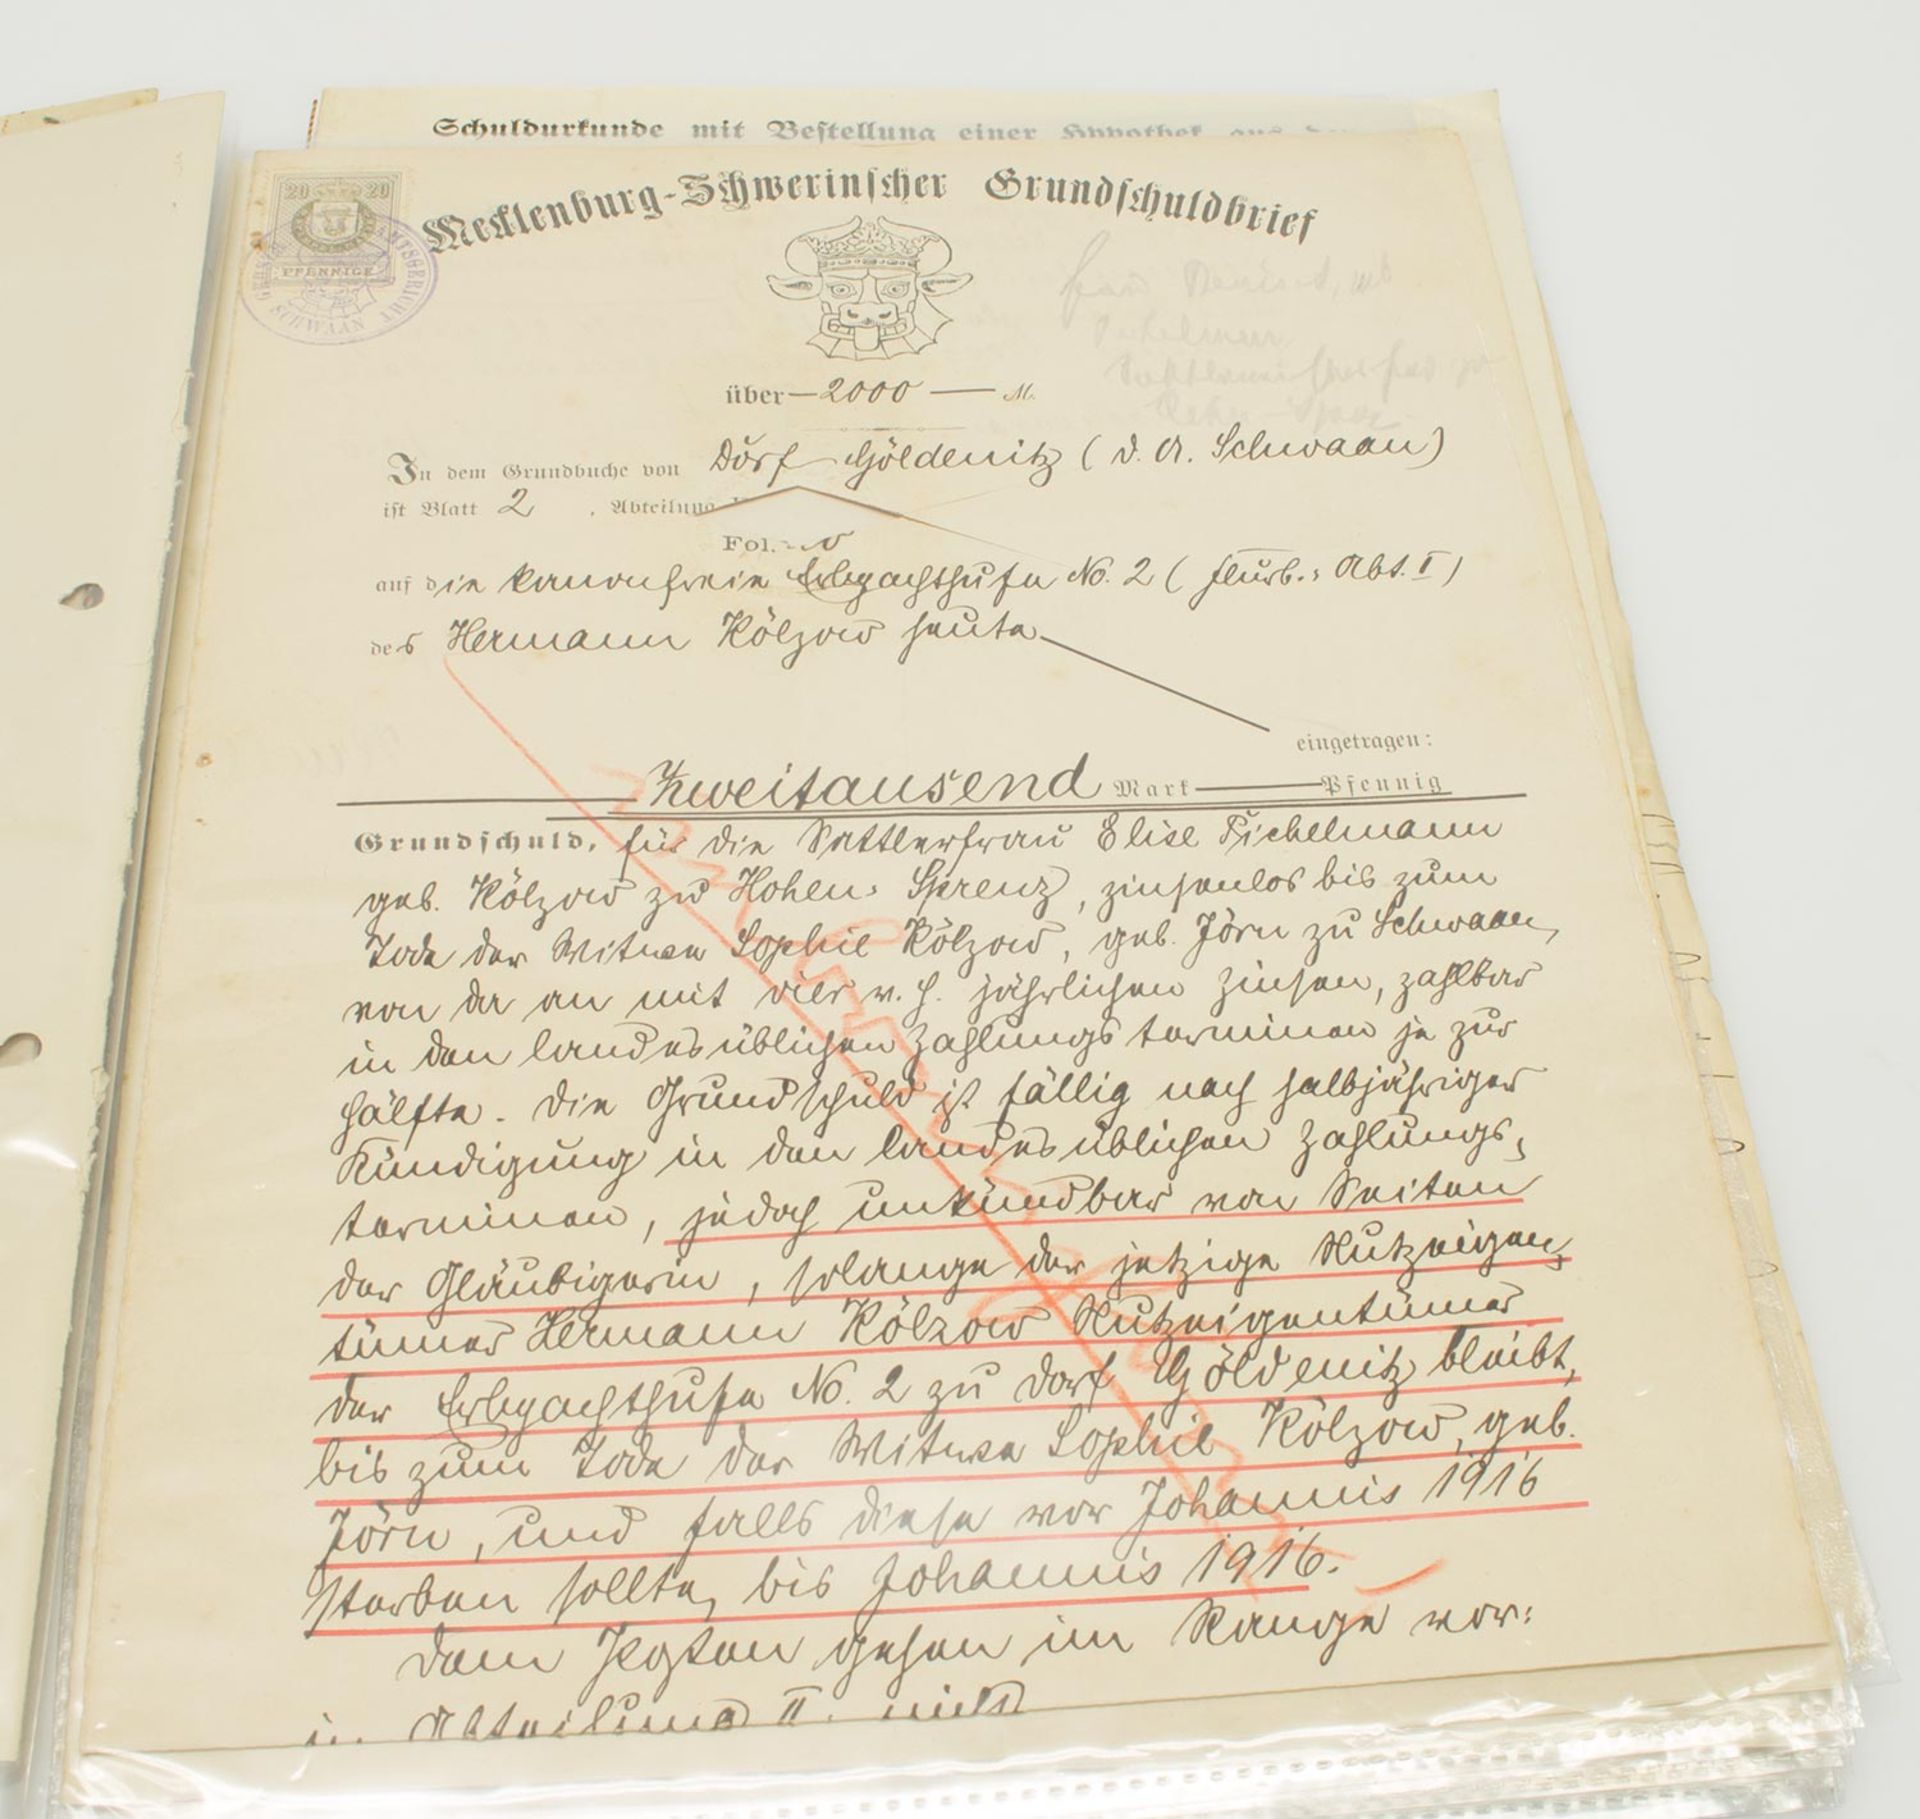 Schuldurkunde mit Bestellung einer Hypothek aus
Mecklenburg-Schwerinscher Grundschuldbrief
20 20
PFENNIGE
AMTSGERICHT SCHWAAN
über — 2000 — M.
In dem Grundbuche von Dorf Göldenitz (D. A. Schwaan)
ist Blatt 2 , Abteilung
Fol.
auf die kanonfreie Erbpachthufe No. 2 (Flurb.: Abt. I)
des Hermann Kölzow heute
eingetragen:
Zweitausend Mark — Pfennig
Grundschuld, für die Sattlerfrau Elise Pichelmann
geb. Kölzow zu Hohen-Sprenz, zinsenlos bis zum
Tode der Witwe Sophie Kölzow, geb. Jörn zu Schwaan,
von da an mit vier v. H. jährlichen Zinsen, zahlbar
in den landesüblichen Zahlungsterminen je zur
Hälfte. Die Grundschuld ist fällig nach halbjähriger
Kündigung in den landesüblichen Zahlungs-
terminen, jedoch unkündbar von Seiten
der Gläubigerin, solange der jetzige Nutzeigen-
tümer Hermann Kölzow Nutzeigentümer
der Erbpachthufe No. 2 zu Dorf Göldenitz bleibt,
bis zum Tode der Witwe Sophie Kölzow, geb.
Jörn, und falls diese vor Johannis 1916
sterben sollte, bis Johannis 1916.
Dem Posten gehen im Range vor:
in Abteilung II. nichts